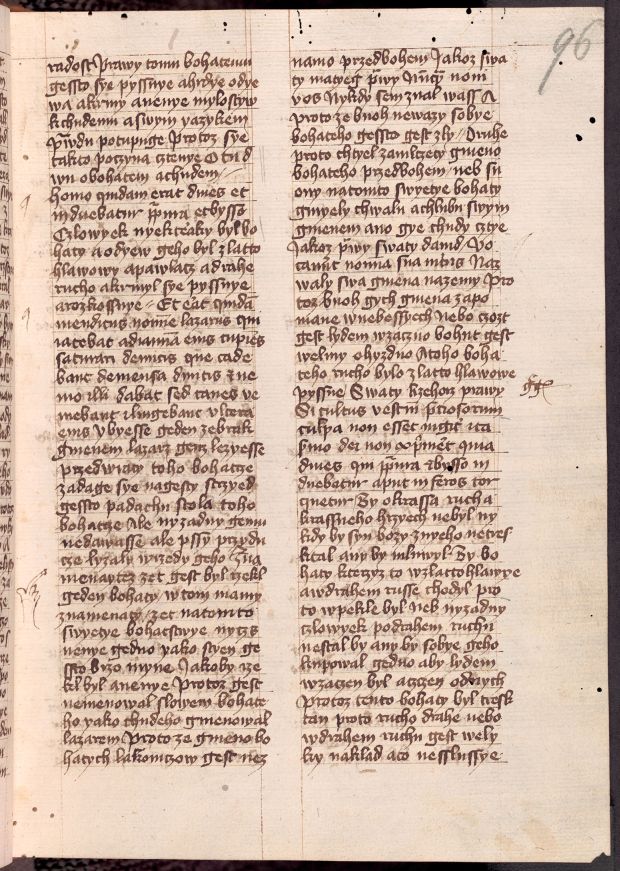 96
radost Prawy tomu bohatemu
gessto sye pyssnye ahrdye odye
wa akrmy anenye mylostyw
kchudemu aswym yazykem
potupuge Protoz sye
takto poczyna cztenye Otu d
wu obohatem achudem
homo quidam erat diues et
induebatur ppura et bysso
Człowyek nyekteraky byl bo
haty aodyew geho byl zlatto
hlawowy apawlacz adrahe
rucho akrmyl sye pyssnye
arozkossnye Et erat quidam
mendicus nomine lazarus qui
iacebat adianuam eius cupiens
saturari demicis que cade
bant demensa diuitis et ne
mo illi dabat sed canes ve
niebant et lingebant vlcera
eius Vbyesse geden zebrak
gmenem lazarz genz lezyesse
przedwraty toho bohatcze
zadage sye nagesty sczyed
gessto padachu stola toho
bohatcze Ale nyzadny gemu
nedawasse ale pssy przycho
cze lyzaly wrzedy geho
menaytez zet gest byl rzekl
geden bohaty wtom mamy
znamenaty zet natomto
swyetye bohactwye nyczs
nenye gedno yako styen ge
ssto brzo myne Jakoby rze
kl byl anenye Protoz gest
nemenowal slowem bohate
ho yako chudeho gmenowal
lazarem Proto ze gmeno bo
hatych lakomczow gest nez
namo przedbohem Jakoz swa
ty matyeg prwy nom
vos Nykdy sem znal wass A
proto ze buoh newazy sobye
bohateho gessto gest zly Druhe
proto chtyel zamlczety gmeno
bohateho przedbohem neb su
ony natomto swyetye bohaty
gmyely chwalu achlubu swym
gmenem ano gye chudy cztye
Jakoz prwy swaty dauid Vo
cauerunt nomina sua in terris Naz
waly swa gmena nazemy Pro
toz buoh gych gmena zapo
mane wnebessych Nebo czozt
gest lydem wzaczno bohu gest
welmy ohyzdno Atoho boha
teho rucho bylo zlattohlawowe
pyssne Swaty rzehorz prawy
Si cultus vestium preciosorum
culpa non esset nigit ita
smo dei non exprimeret quia
diues qui ppura et bysso in
duebatur aput inferos tor
quetur By okrassa rucha
krassneho hrzyech nebyl ny
kdy by syn bozy zneho netres
ktal any by mluwyl By bo
haty kterzyz to wzlattohlawye
awdrahem russe chodyl pro
to wpekle byl Neb nyzadny
człowyek podrahem ruchu
nestal by any by sobye geho
kupowal gedno aby lydem
wzaczen byl actzen odnych
Protoz tento bohaty byl tresk
tan proto rucho drahe nebo
wdrahem ruchu gest wely
ky naklad aco nesslussye